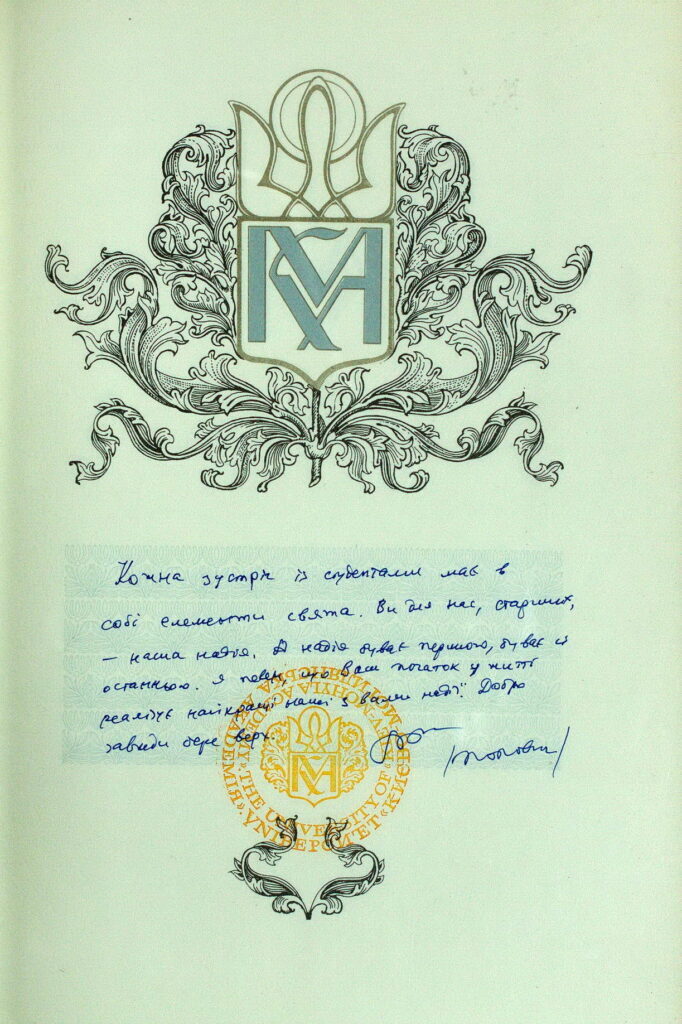 КМА
Кожна зустріч із студентами має в
собі елементи свята. Ви для нас, старших,
— наша надія. А надія буває першою, буває й
останньою. Я певен, що Ваш початок у житті
реалізує найкращі наші з вами надії. Добро
завжди бере верх.
Попович
THE UNIVERSITY OF "KYIV-MOHYLA ACADEMY"
УНІВЕРСИТЕТ "КИЄВО-МОГИЛЯНСЬКА АКАДЕМІЯ"
КМА